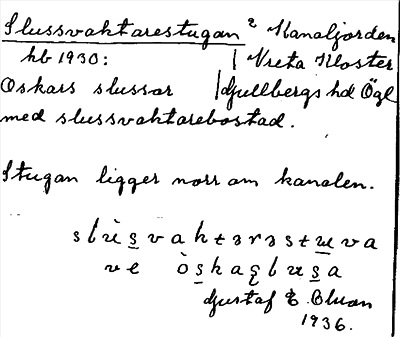 Slussvaktarestugan Kanaljorden
hb 1930: Vreta Kloster
Oskars slussar Gullbergs hd Ögl
med slussvaktarebostad.
Stugan ligger norr om kanalen.
Gustaf E. Bluan
1936.